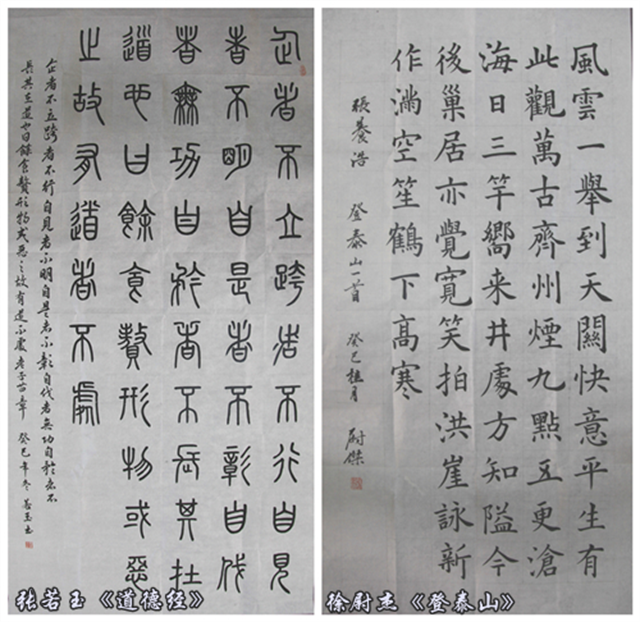 企者不立跨者不行自見
者不明自是者不彰自伐
者無功自矜者不長其在
道也曰餘食贅形物或惡
之故有道者不處
企者不立跨者不行自見者不明自是者不彰自伐者無功自矜者不
長其在道也曰餘食贅形物或惡之故有道不處老子廿四章 癸巳年冬 若玉書
张若玉《道德经》
風雲一舉到天關快意平生有
此觀萬古齊州煙九點五更滄
海日三竿嚮来井處方知隘今
後巢居亦覺寬笑拍洪崖詠新
作滿空笙鶴下高寒
張養浩 登泰山一首 癸巳桂月 尉傑
徐尉杰《登泰山》